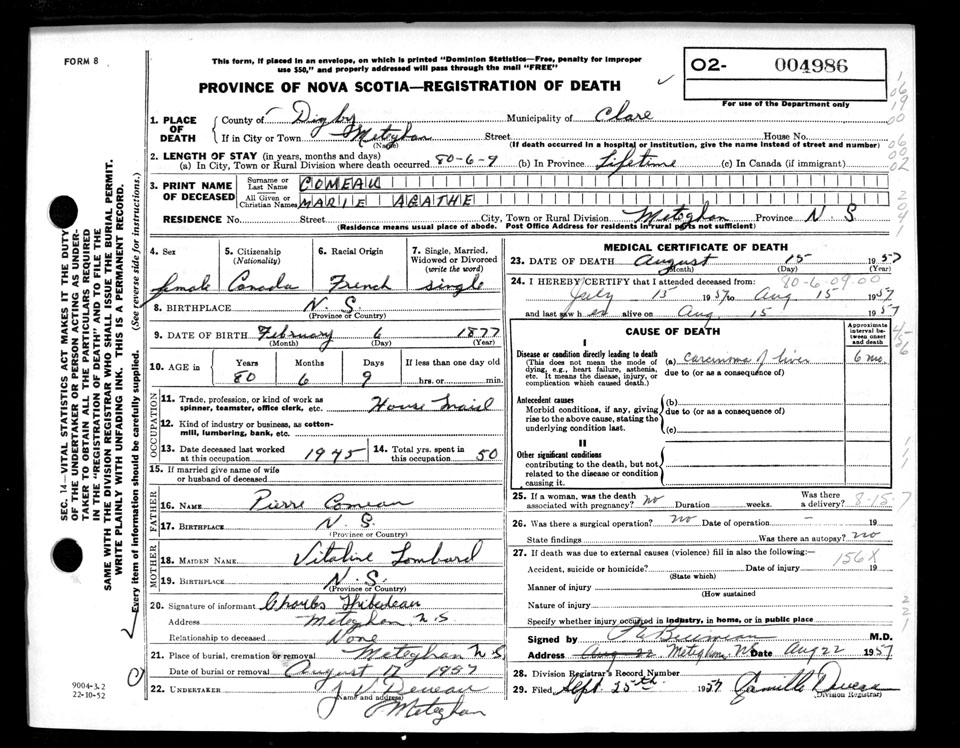 FORM 8
This form, if placed in an envelope, on which is printed "Dominion Statistics—Free, penalty for improper
use $50," and properly addressed will pass through the mail "FREE"
PROVINCE OF NOVA SCOTIA—REGISTRATION OF DEATH
O2- 004986
For use of the Department only
1. PLACE OF DEATH County of Digby Municipality of Clare
If in City or Town Meteghan Street House No.
(Name) (If death occurred in a hospital or institution, give the name instead of street and number)
2. LENGTH OF STAY (in years, months and days)
(a) In City, Town or Rural Division where death occurred 80-6-9 (b) In Province Lifetime (c) In Canada (if immigrant)
3. PRINT NAME OF DECEASED Surname or Last Name COMEAU
All Given or Christian Names MARIE AGATHE
RESIDENCE No. Street City, Town or Rural Division Meteghan Province N. S.
(Residence means usual place of abode. Post Office Address for residents in rural parts not sufficient)
4. Sex female
5. Citizenship (Nationality) Canada
6. Racial Origin French
7. Single, Married, Widowed or Divorced (write the word) single
8. BIRTHPLACE N. S.
(Province or Country)
9. DATE OF BIRTH February 6 1877
(Month) (Day) (Year)
10. AGE in Years Months Days If less than one day old
80 6 9 hrs. or min.
OCCUPATION
11. Trade, profession, or kind of work as spinner, teamster, office clerk, etc. House Maid
12. Kind of industry or business, as cotton-mill, lumbering, bank, etc.
13. Date deceased last worked at this occupation 1945 14. Total yrs. spent in this occupation 50
15. If married give name of wife or husband of deceased
FATHER
16. NAME Pierre Comeau
17. BIRTHPLACE N. S.
(Province or Country)
MOTHER
18. MAIDEN NAME Vitaline Lombard
19. BIRTHPLACE N. S.
(Province or Country)
20. Signature of informant Charles Thibodeau
Address Meteghan N S
Relationship to deceased None
21. Place of burial, cremation or removal Meteghan N. S.
Date of burial or removal August 17 1957
22. UNDERTAKER J V Deveau
(Name and address) Meteghan
MEDICAL CERTIFICATE OF DEATH
23. DATE OF DEATH August 15 1957
(Month) (Day) (Year)
80-6-09.00
24. I HEREBY CERTIFY that I attended deceased from:
July 15 1957 to Aug 15 1957
and last saw her alive on Aug. 15 1957
CAUSE OF DEATH
Approximate interval between onset and death
I
Disease or condition directly leading to death
(This does not mean the mode of dying, e.g., heart failure, asthenia, etc. It means the disease, injury, or complication which caused death.)
(a) carcinoma of liver 6 mo.
due to (or as a consequence of)
Antecedent causes
Morbid conditions, if any, giving rise to the above cause, stating the underlying condition last.
(b)
due to (or as a consequence of)
(c)
II
Other significant conditions
contributing to the death, but not related to the disease or condition causing it.
25. If a woman, was the death associated with pregnancy? no Duration weeks. Was there a delivery?
8-15-7
26. Was there a surgical operation? no Date of operation — 19
State findings Was there an autopsy? no
27. If death was due to external causes (violence) fill in also the following:—
156X
Accident, suicide or homicide? Date of injury 19
(State which)
Manner of injury
(How sustained
Nature of injury
Specify whether injury occurred in industry, in home, or in public place
Signed by M.D.
Address Aug 22 Meteghan, Date Aug 22 1957
28. Division Registrar's Record Number
29. Filed Sept. 25th 1957 Camille Deveau
(Division Registrar)
SEC. 14—VITAL STATISTICS ACT MAKES IT THE DUTY
OF THE UNDERTAKER OR PERSON ACTING AS UNDER-
TAKER TO OBTAIN ALL THE PARTICULARS REQUIRED
IN THE "REGISTRATION OF DEATH" AND TO FILE THE
SAME WITH THE DIVISION REGISTRAR WHO SHALL ISSUE THE BURIAL PERMIT.
WRITE PLAINLY WITH UNFADING INK. THIS IS A PERMANENT RECORD.
Every item of information should be carefully supplied. (See reverse side for instructions.)
9004-3.2
22-10-52